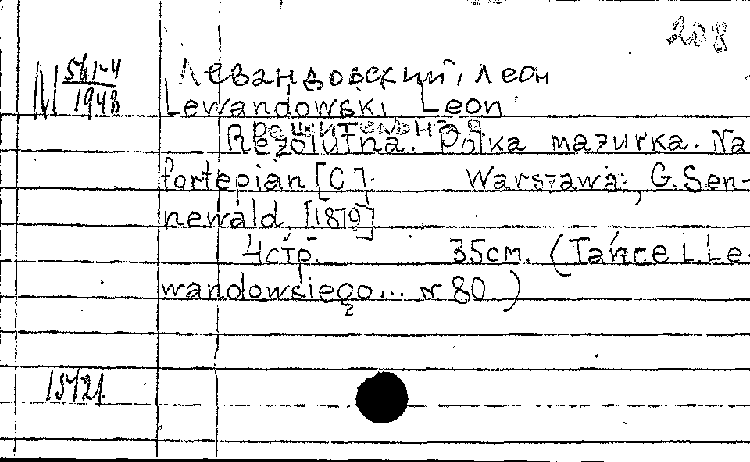 208
N 561-4
1948
Левандовский, Леон
Lewandowski Leon
решительная
Rezolutna. Polka mazurka. Na
fortepian [C]. Warszawa, G. Sen-
newald, [1879]
4 стр. 35 см. (Tańce L. Le-
wandowskiego... № 80)